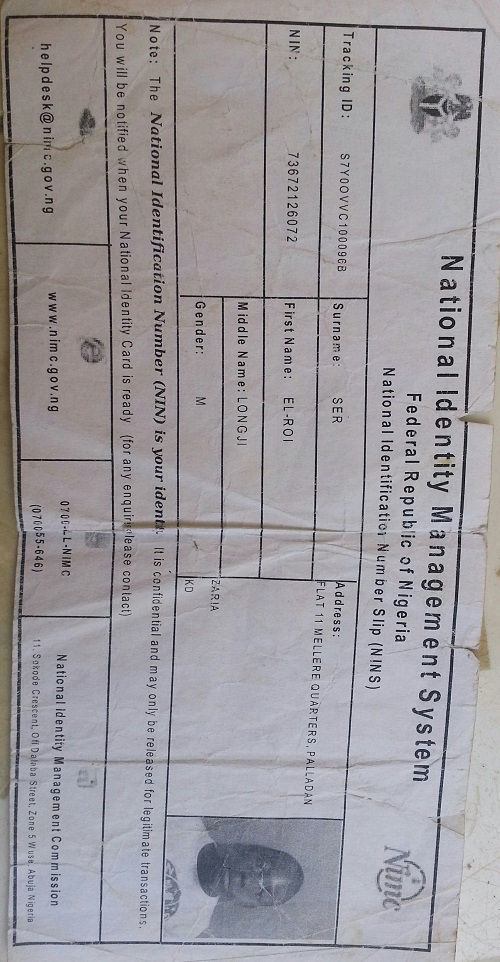 National Identity Management System
Federal Republic of Nigeria
National Identification Number Slip (NINS)
Nimc
Tracking ID: S7Y0OVVC100096B
Surname: SER
Address:
FLAT 11 MELLERE QUARTERS, PALLADAN
NIN: 73672126072
First Name: EL-ROI
Middle Name: LONGJI
ZARIA
Gender: M
KD
Note: The National Identification Number (NIN) is your identi. It is confidential and may only be released for legitimate transactions.
You will be notified when your National Identity Card is ready (for any enquiri lease contact)
helpdesk@nimc.gov.ng
www.nimc.gov.ng
(070055-646)
National Identity Management Commission
11, Sokode Crescent, Off Dalaba Street, Zone 5 Wuse, Abuja Nigeria